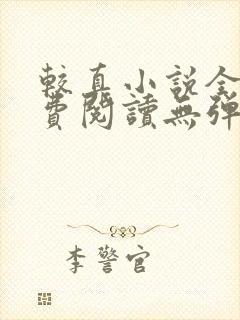 較真小說全
費閱讀無彈
李警官